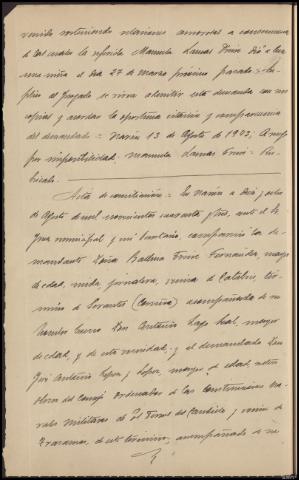 venido sosteniendo relaciones amorosas a consecuencia
de las cuales la referida Manuela Lamas dió a luz
una niña el día 27 de Marzo próximo pasado = Su-
plica al Juzgado se sirva admitir esta demanda con sus
copias y acordar la oportuna citación y comparecencia
del demandado = Narón 13 de Agosto de 1943, A ruego
por imposibilidad, Manuela Lamas
Acta de conciliación = En Narón a diez y ocho
de Agosto de mil novecientos cuarenta y tres, ante el Sr
Juez municipal y mi Secretario, comparecen la de-
mandante Doña Fernandez, mayor
de edad, viuda, jornalera, vecina de
mino de Serantes acompañada de su
hombre bueno Don Antonio Lago Leal, mayor
de edad, y de esta vecindad; y el demandado Don
José Antonio Lopez y Lopez, mayor de edad,
del de las Construcciones na-
vales militares de El Ferrol del Caudillo y vecino de
de este término, acompañado de su